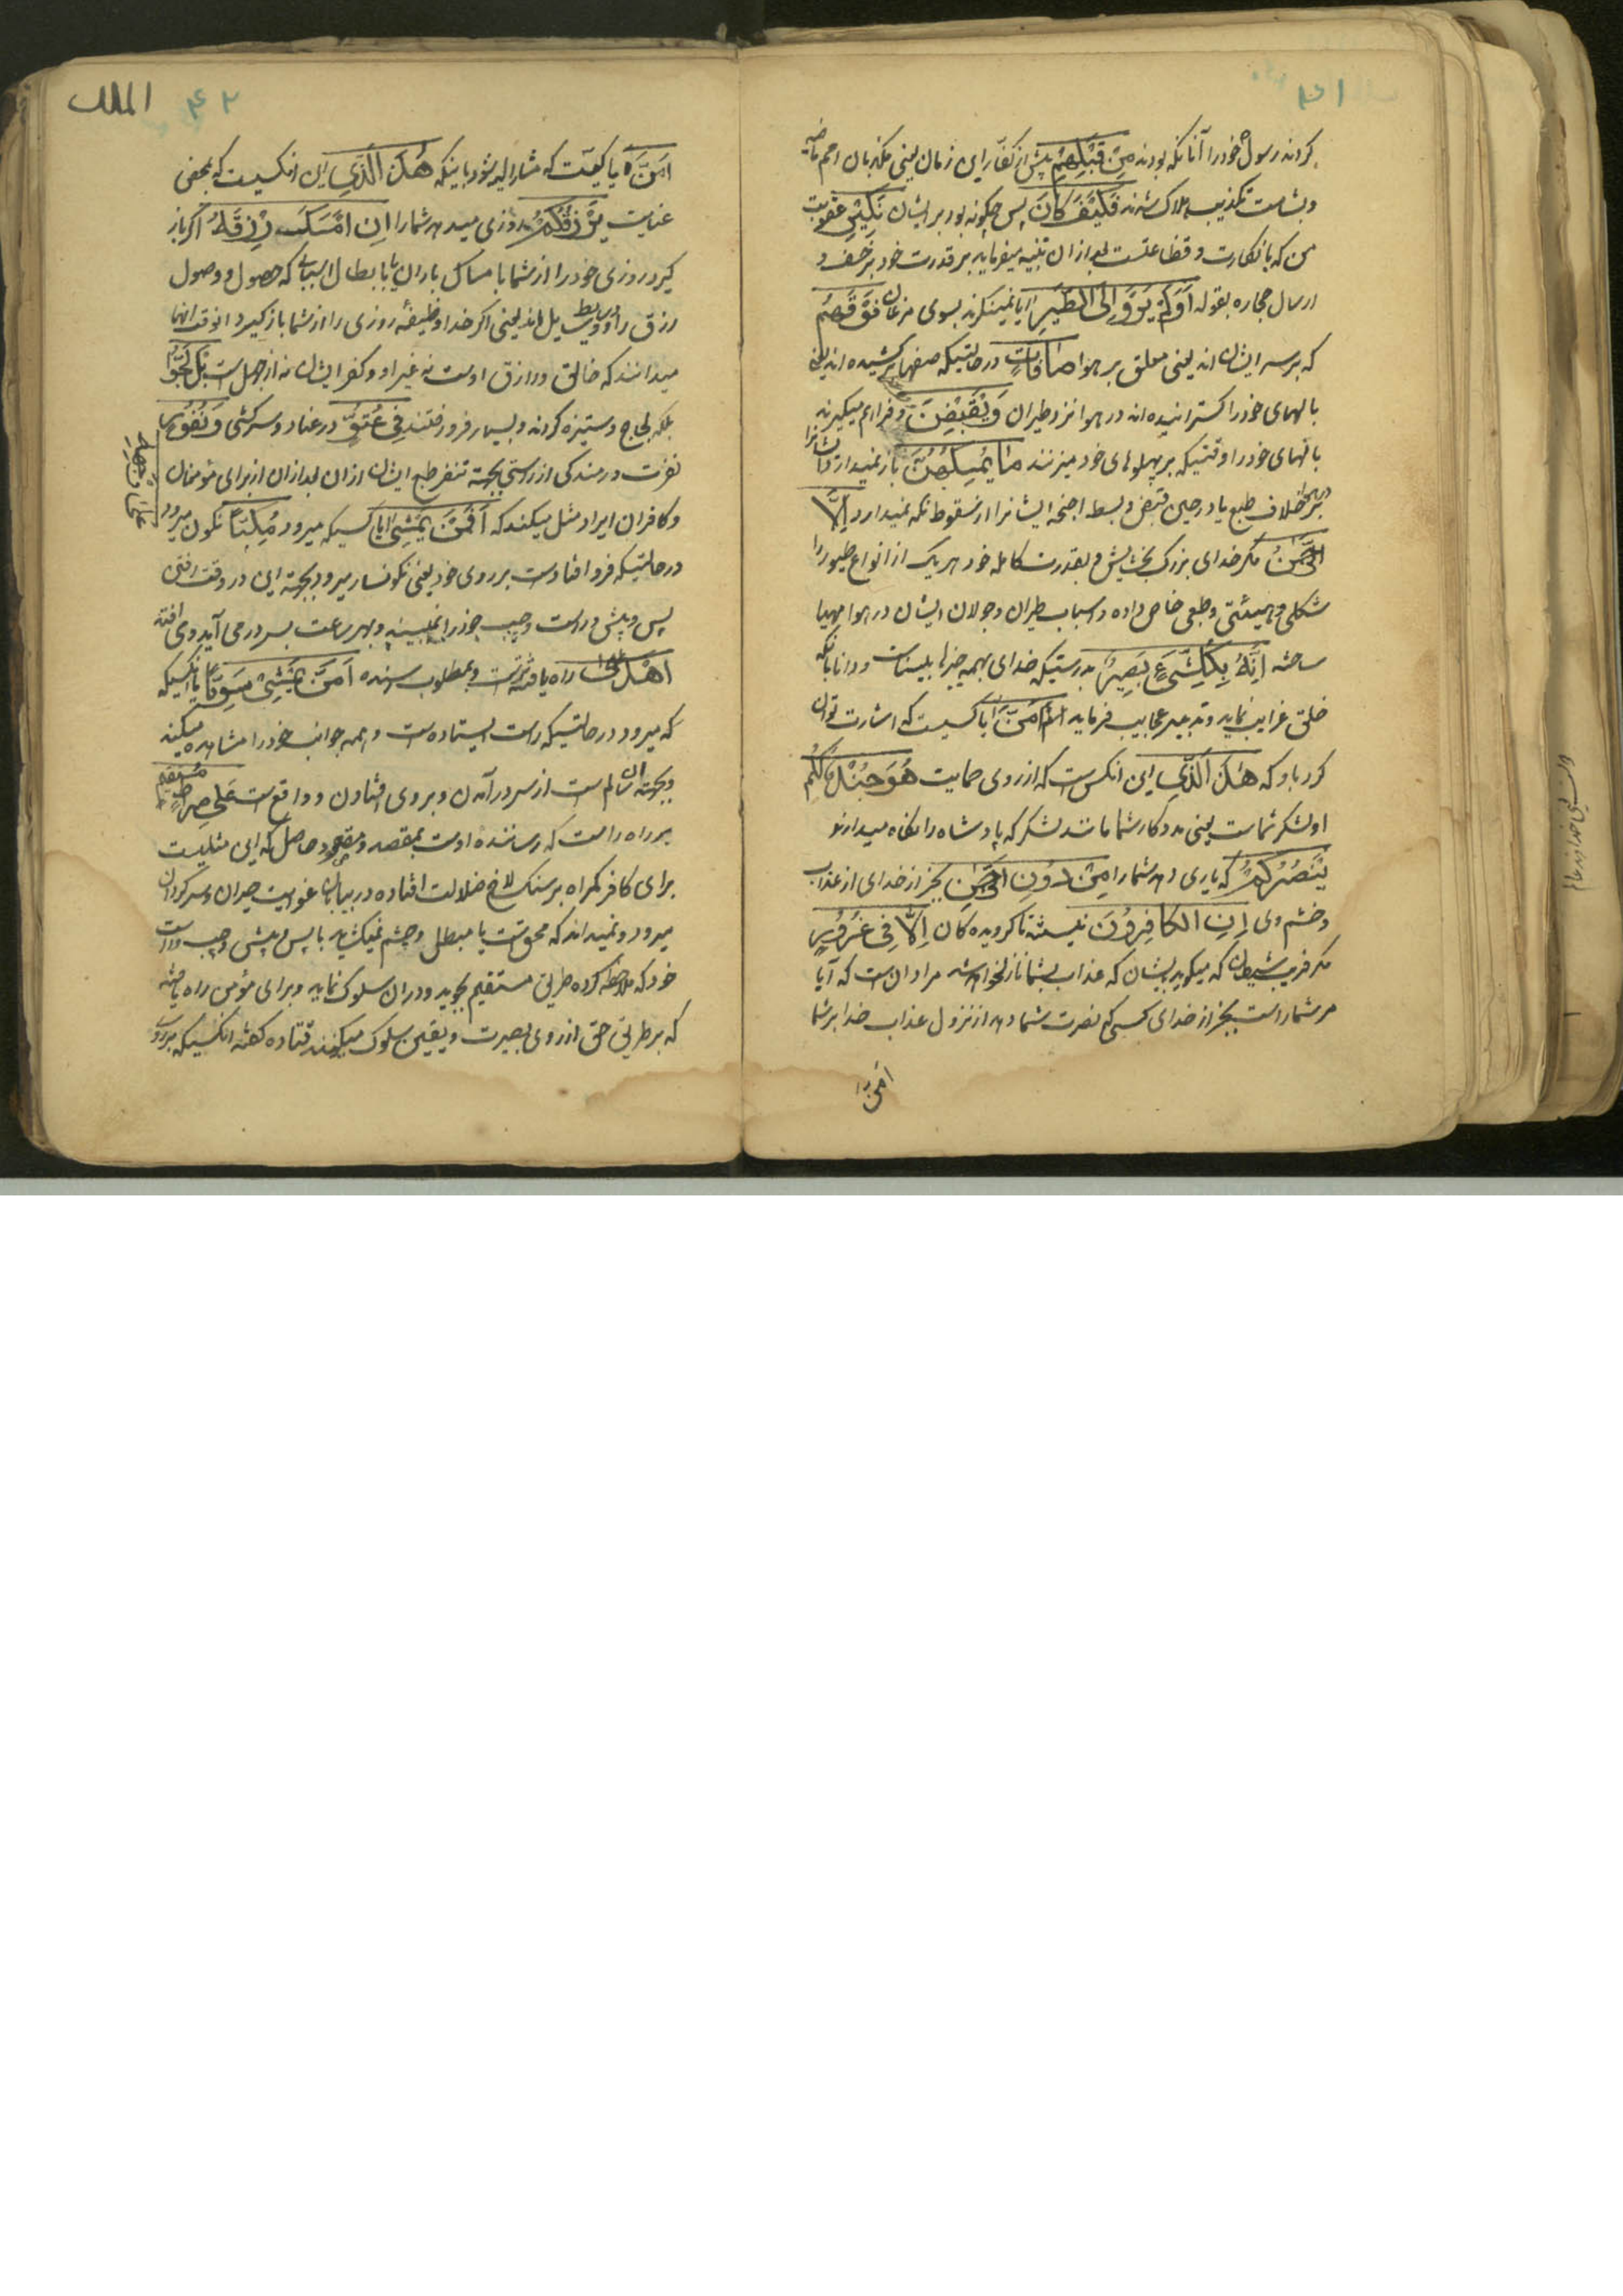 ۴۱
کردند رسول خود را آنانکه بودند مِنْ قَبْلِهِمْ پیش از کفار این زمان یعنی مکذبان امم ماضیه
و بشامت تکذیب هلاک شدند فَكَيْفَ كَانَ پس چکونه بود بر ایشان نَكِيرِ عقوبت
من که بانکارت و فظاعتست بعد از ان تنبیه میفرماید بر قدرت خود بر خسف و
ارسال حجاره بقوله أَوَلَمْ يَرَوْا إِلَى الطَّيْرِ ایا نمینکرند بسوی مرغان فَوْقَهُمْ
که بر سر ایشان اند یعنی معلق بر هوا صَافَّاتٍ در حالتیکه صفها برکشیده اند یعنی
بالهای خود را کسترانیده اند در هوا نزد طیران وَيَقْبِضْنَ و فراهم میکیرند
بالهای خود را وقتیکه بر پهلوهای خود میزنند مَا يُمْسِكُهُنَّ باز نمیدارد ایشانرا
بر خلاف طبع یا در حین قبض و بسط اجنحه ایشانرا از سقوط نکه نمیدارد إِلَّا
الرَّحْمَنُ مکر خدای بزرک بخشایش و بقدرت کامله خود هر یک از انواع طیور را
شکلی و هیئتی و طبعی خاص داده و اسباب طیران و جولان ایشان در هوا مهیا
ساخته إِنَّهُ بِكُلِّ شَيْءٍ بَصِيرٌ بدرستیکه خدای بهمه چیزها بیناست و دانا بآنکه
خلق غرایب نماید و تدبیر عجایب فرماید أَمَّنْ ایا کیست که اشارت توان
کرد باو که هَذَا الَّذِي این انکس است که از روی حمایت هُوَ جُنْدٌ لَكُمْ
او لشکر شماست یعنی مددکار شما مانند لشکر که پادشاه را نکاه میدارند
يَنْصُرُكُمْ که یاری دهد شما را مِنْ دُونِ الرَّحْمَنِ بجز از خدای از عذاب
و خشم وی إِنِ الْكَافِرُونَ نیستند ناکرویدەکان إِلَّا فِي غُرُورٍ
مکر فریب شیطان که میکوید بایشان که عذاب بشما نازل نخواهد شد مراد ان است که آیا
مر شما راست بجز از خدای کسی که نصرت شما دهد از نزول عذاب خدا بر شما
امّن
۴۲
الملك
أَمَّنْ یا کیست که مشار الیه شود باینکه هَذَا الَّذِي این انکسیست که بمحض
عنایت يَرْزُقُكُمْ روزی میدهد شما را إِنْ أَمْسَكَ رِزْقَهُ اکر باز
کیرد روزی خود را از شما بامساک باران یا بابطال اسبابی که حصول و وصول
رزق را وسایط و وسایل اند یعنی اکر خدا وظیفه روزی را از شما باز کیرد انوقت انها
میدانند که خالق و رازق اوست نه غیر او و کفر ایشان نه از جهل است بَلْ لَجُّوا
بلکه لجاج و ستیزه کردند و بسیار فرو رفتند فِي عُتُوٍّ در عناد و سرکشی وَنُفُورٍ و
نفرت و رمندکی از راستی بجهة تنفر طبع ایشان ازان بعد ازان از برای مؤمنان
و کافران ایراد مثل میکند که أَفَمَنْ يَمْشِي ایا کسیکه میرود مُكِبًّا نکون میرود
عَلَى وَجْهِهِ
در حالتیکه فرو افتادست بر روی خود یعنی نکونسار میرود بجهة این در وقت رفتن
پس و پیش و راست و چپ خود را نمیبیند و بهر ساعت بسر در می آید و می افتد
أَهْدَى راه یافته ترست و بمطلوب رسنده أَمَّنْ يَمْشِي سَوِيًّا یا آنکسیکه
که میرود در حالتیکه راست ایستاده است و همه جوانب خود را مشاهده میکند
و بجهة ان سالم است از سر در آمدن و بروی افتادن و واقع است عَلَى صِرَاطٍ مُسْتَقِيمٍ
بر راه راست که رساننده اوست بمقصد و مقصود حاصل که این مثلیست
برای کافر کمراه بر سنک لاخ ضلالت افتاده در بیابان غوایت حیران و سرکردان
میرود و نمیداند که محق است یا مبطل و چشم نمیکشاید با پس و پیش و چپ و راست
خود که ملاحظه کرده طریق مستقیم بجوید و دران سلوک نماید و برای مؤمن راه یافته
که بر طریق حق از روی بصیرت و یقین سلوک میکند قتاده کفته انکسیکه بر روی